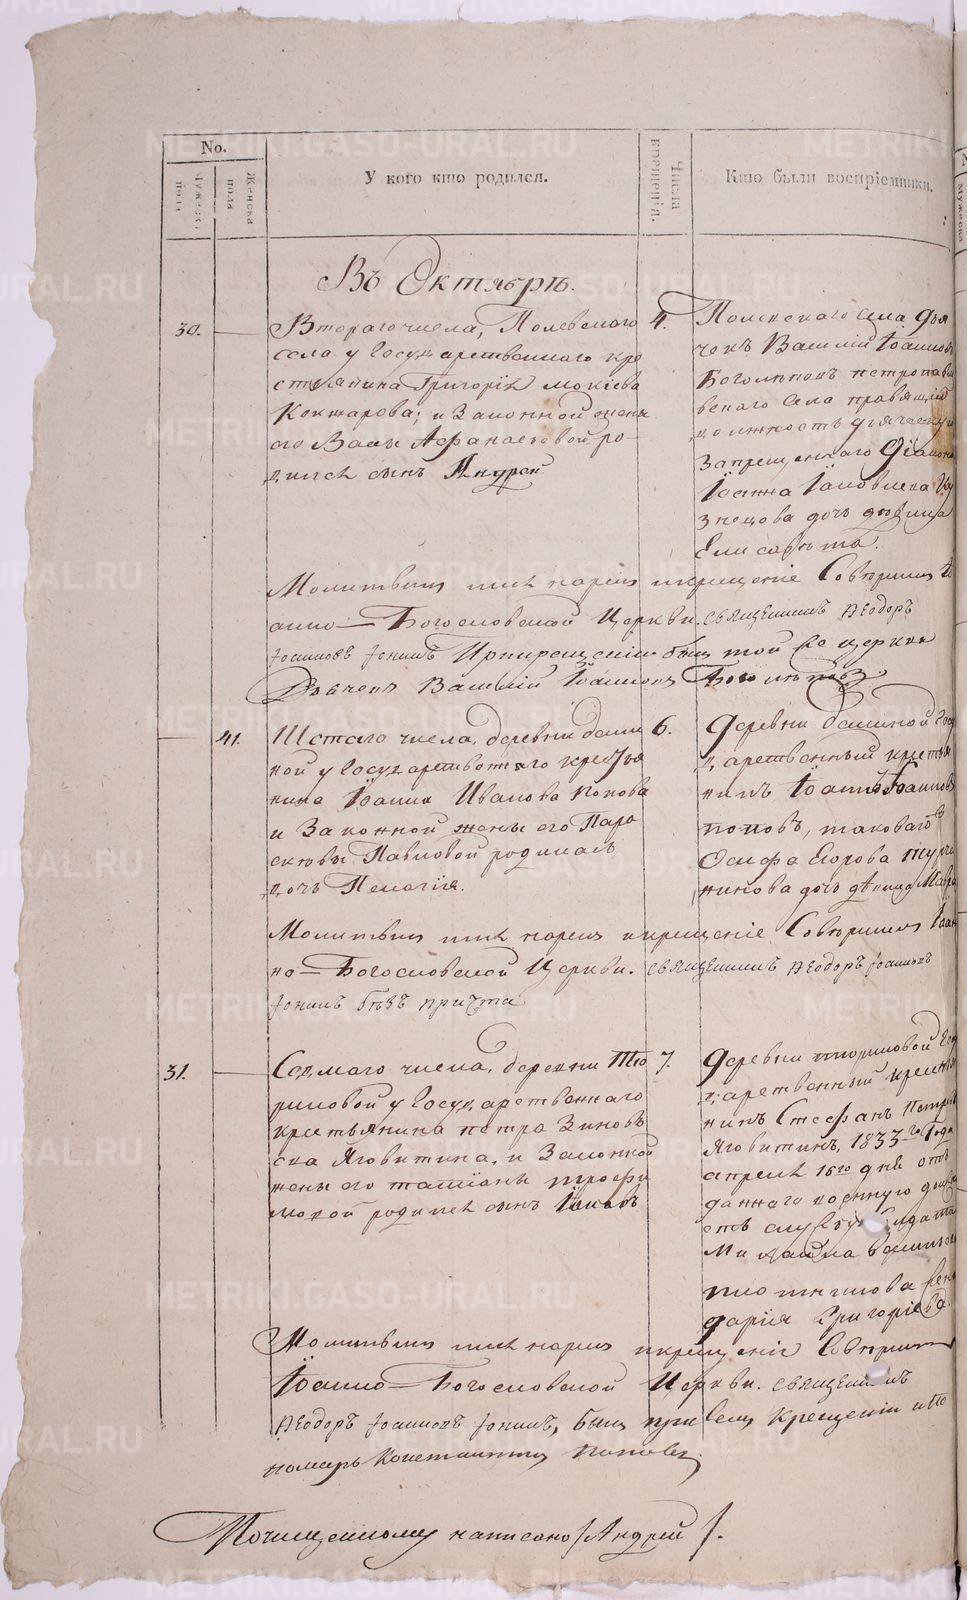 No.
Мужеска пола
Женска пола
У кого кто родился.
Числа крещенія.
Кто были воспріемники.
Въ Октябрѣ.
30.
Втораго числа, Полевскаго
села у Государственнаго кре
стьянина Григорія Мокіева
и Законной жены
его Васы Афанасьевой ро-
дился сынъ Андрей
4.
села дья
чокъ Василій Іоанновъ
Боголѣповъ петропав
вскаго села правящій
должность дьяческую
Запрещеннаго Діакона
Іоанна Іаковлева Ку
знецова дочь дѣвица
Елисавета.
Молитвилъ имя нарекъ и крещеніе Совершилъ Іо
анно-Богословской Церкви. священникъ Ѳеодоръ
Іоанновъ Іонинъ При крещеніи былъ той же церкви
Дьячекъ Василій Іоанновъ Боголѣповъ
41.
Шестаго числа, деревни
ной у Государственнаго крестья
нина Іоанна Иванова Попова
и Законной жены его Пара
скевы Павловой родилась
дочь Пелагія.
6.
Деревни Госу
дарственный крестья
нинъ Іоаннъ Іоанновъ
поповъ, таковагоже
Осифа Егорова
нинова дочь дѣвица
Молитвилъ имя нарекъ и крещеніе Совершилъ Іоан
но-Богословской Церкви. священникъ Ѳеодоръ Іоанновъ
Іонинъ безъ причта
31.
Седмаго числа, деревни Тю
риковой у Государственнаго
крестьянина петра Зиновь
ева Яговитина, и Законной
жены его татіаны трофи
мовой родился сынъ Іаковъ
7.
Деревни Го
дарственный крестья
нинъ Стефанъ Петровъ
Яговитинъ, 1833го Года
апреля 16го дня от
даннаго военную
еть службу Солдата
Михаила
Григоріева.
Молитвилъ имя нарекъ и крещеніе Совершилъ
Іоанно-Богословской Церкви. священникъ
Ѳеодоръ Іоанновъ Іонинъ, былъ при семъ Крещеніи и По
номарь Константинъ поповъ
Почищенному написано / Андрей /.
METRIKI.GASO-URAL.RU